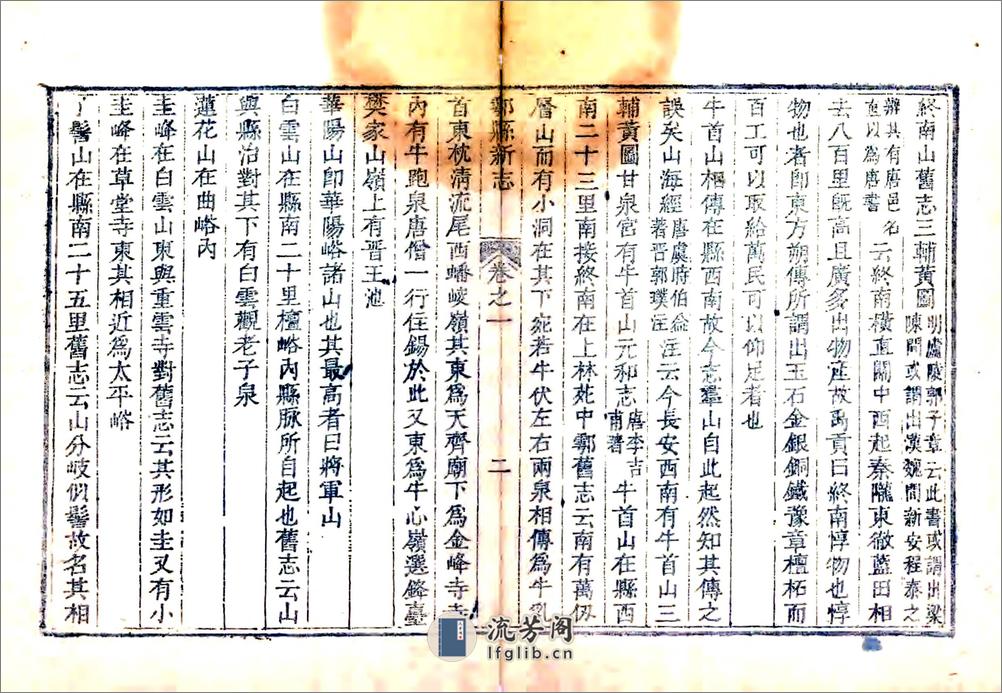 終南山舊志三輔黃圖明盧陵郭子章云此書或謂出梁陳間或謂出漢魏間新安程泰之
辨其有唐邑名直以為唐書云終南橫亘關中西起秦隴東徹藍田相
去八百里旣高且廣多出物產故禹貢曰終南惇物也惇
物也者卽東方朔傳所謂出玉石金銀銅鐵豫章檀柘而
百工可以取給萬民可以仰足者也
牛首山相傳在縣西南故今志羣山自此起然知其傳之
誤矣山海經唐虞時伯益著晋郭璞注注云今長安西南有牛首山三
輔黃圖甘泉宮有牛首山元和志唐李吉甫著牛首山在縣西
南二十三里南接終南在上林苑中鄠舊志云南有萬仭
層山而有小洞在其下宛若牛伏左右兩泉相傳爲牛
鄠縣新志 卷之一 二
首東枕清流尾西蟠峻嶺其東爲天齊廟下爲金峰寺寺
內有牛跑泉唐僧一行住錫於此又東爲牛心嶺選鋒臺
樊家山嶺上有晋王池
華陽山卽華陽峪諸山也其最高者曰將軍山
白雲山在縣南二十里檀峪內縣脉所自起也舊志云山
與縣治對其下有白雲觀老子泉
蓮花山在曲峪內
圭峰在白雲山東與重雲寺對舊志云其形如圭又有小
圭峰在草堂寺東其相近爲太平峪
了髻山在縣南二十五里舊志云山分岐似髻故名其相
流芳阁
lfglib.cn